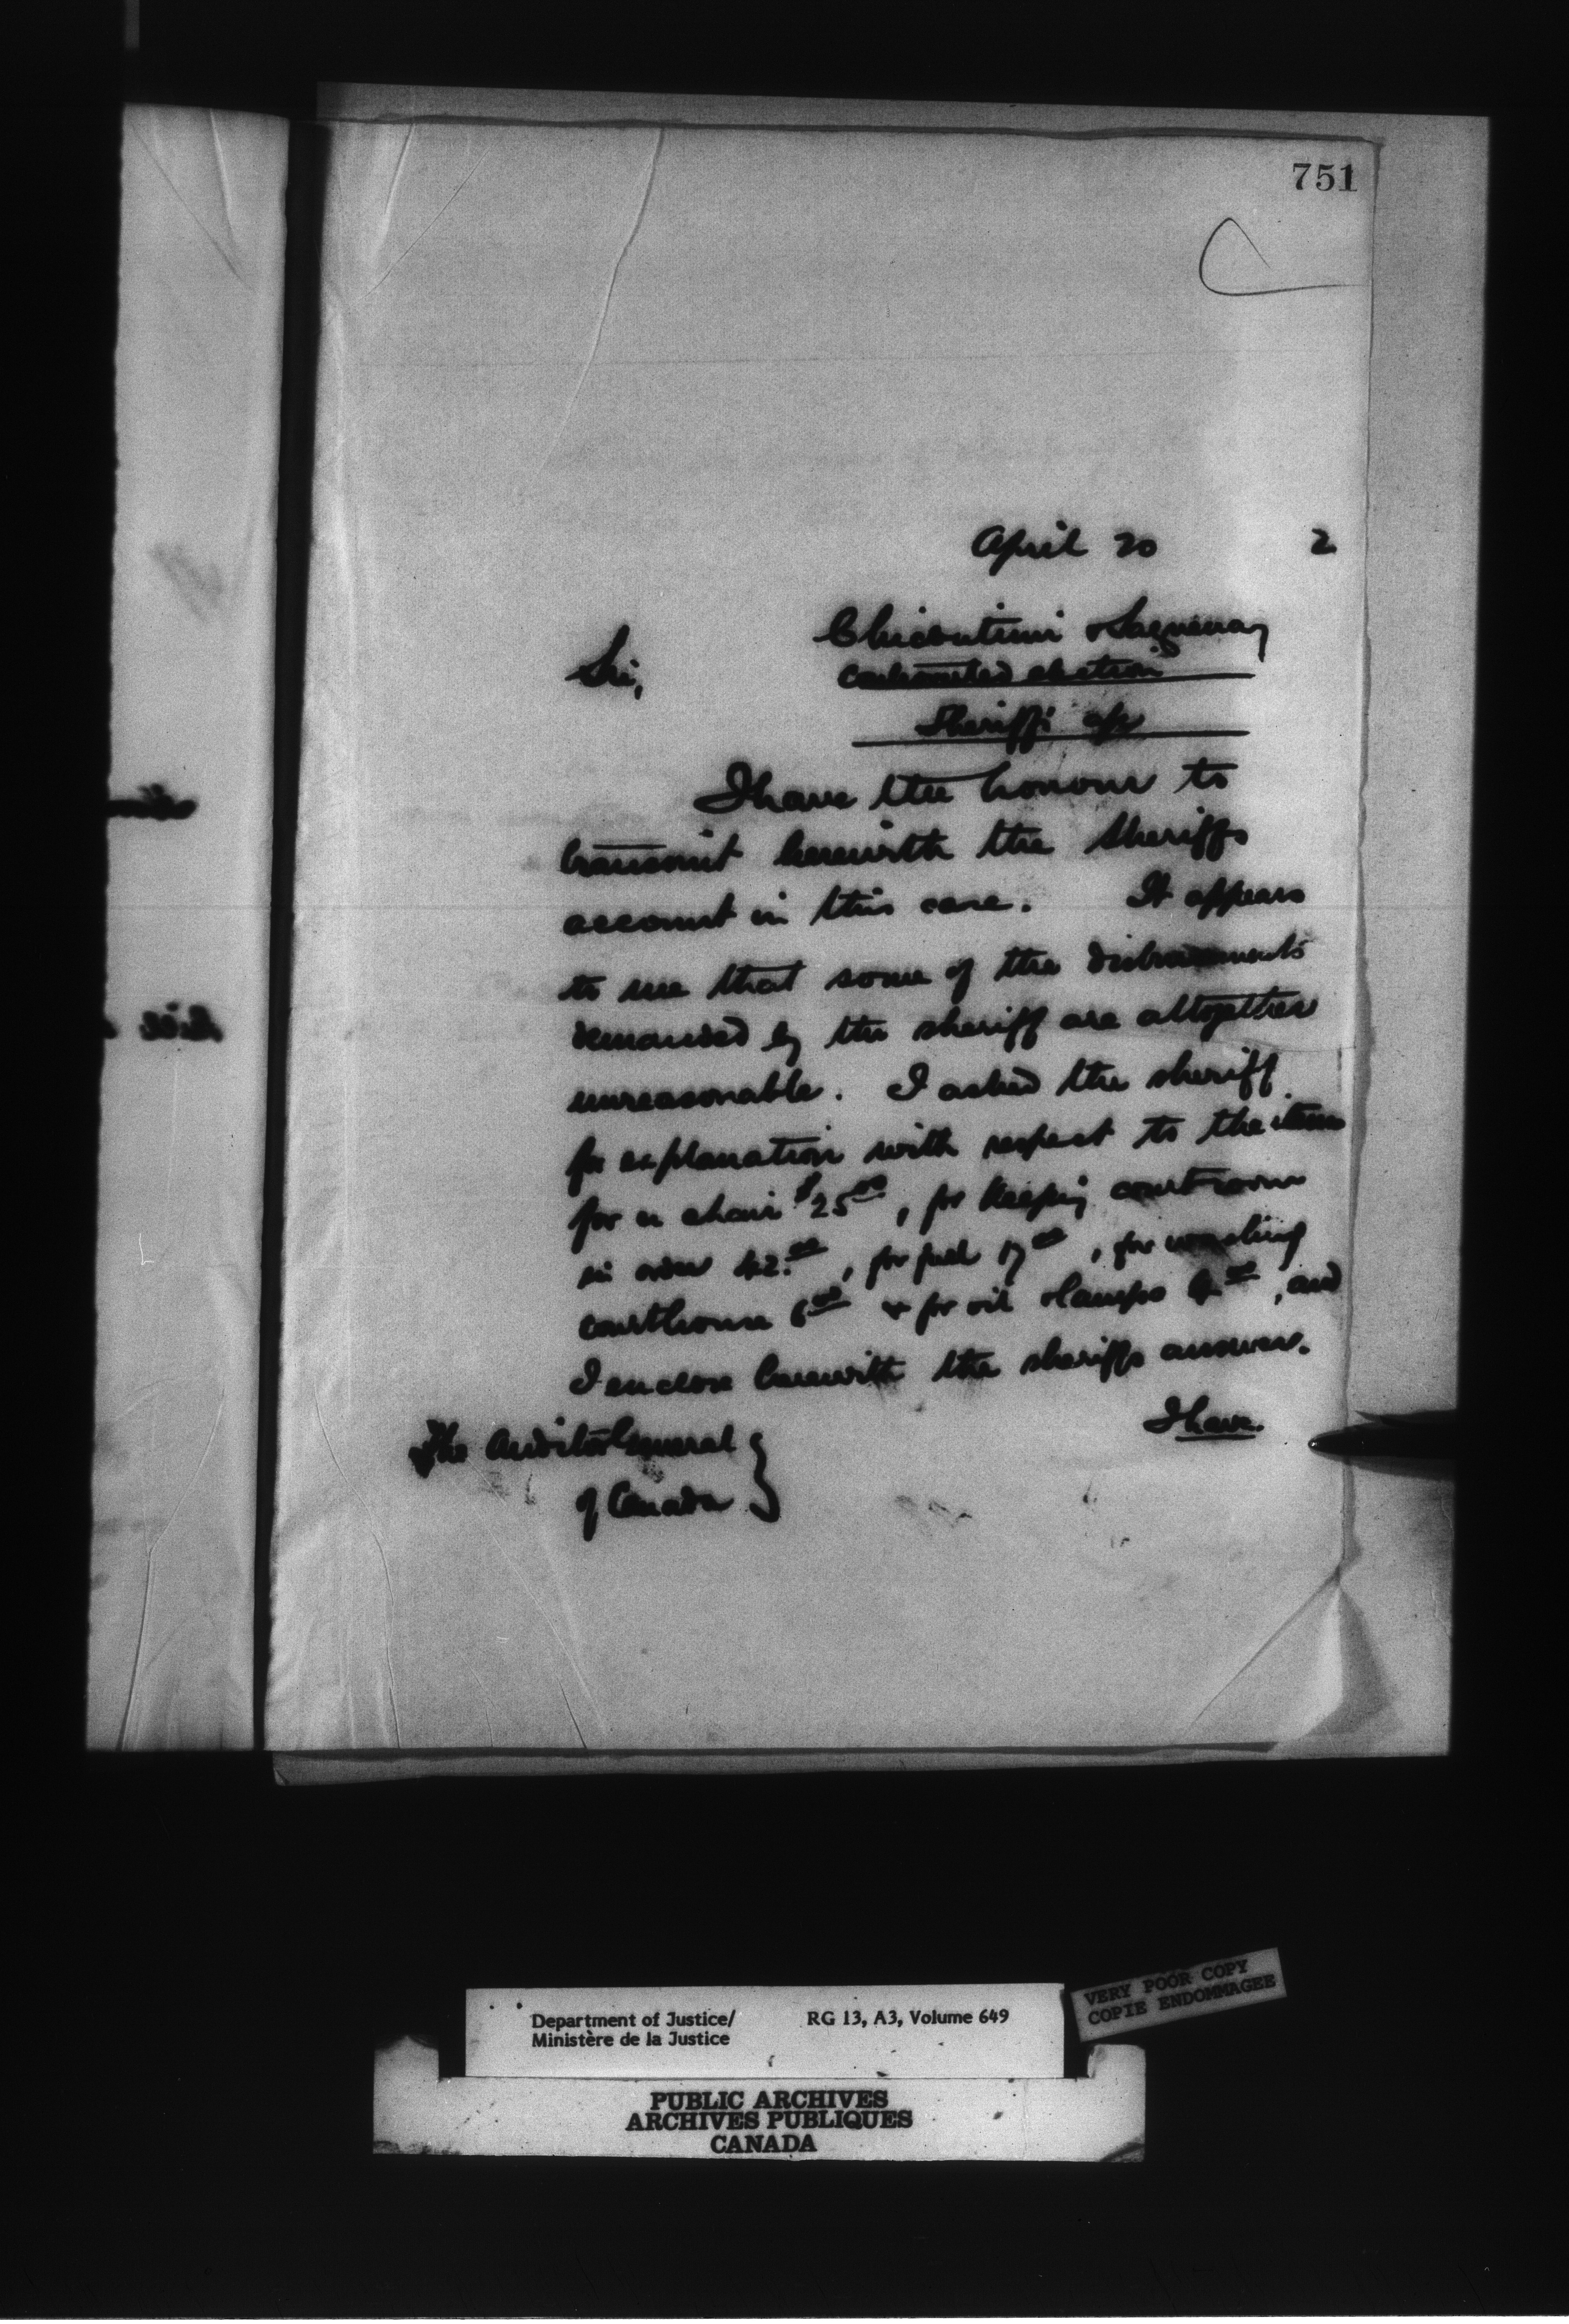 751
April 20 2
Chicoutimi & Saguenay
Sir,
Controverted election
Sheriff's a/c
I have the honour to
transmit herewith the Sheriffs
account in this case. It appears
to me that some of the disbursements
demanded by the sheriff are altogether
unreasonable. I asked the sheriff
for explanation with respect to the items
for a chair $25.00, for keeping courtroom
in order 42.00, for fuel 17.00, for washing
courthouse 6.00 & for oil & lamps 4.00, and
I enclose herewith the sheriffs answer.
I have
The Auditor General
of Canada
Department of Justice/ RG 13, A3, Volume 649
Ministère de la Justice
VERY POOR COPY
COPIE ENDOMMAGEE
PUBLIC ARCHIVES
ARCHIVES PUBLIQUES
CANADA